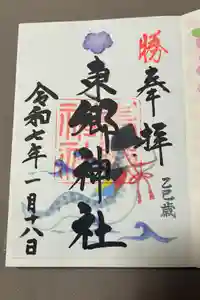 勝
奉拝
乙巳歳
東郷神社
令和七年一月十八日